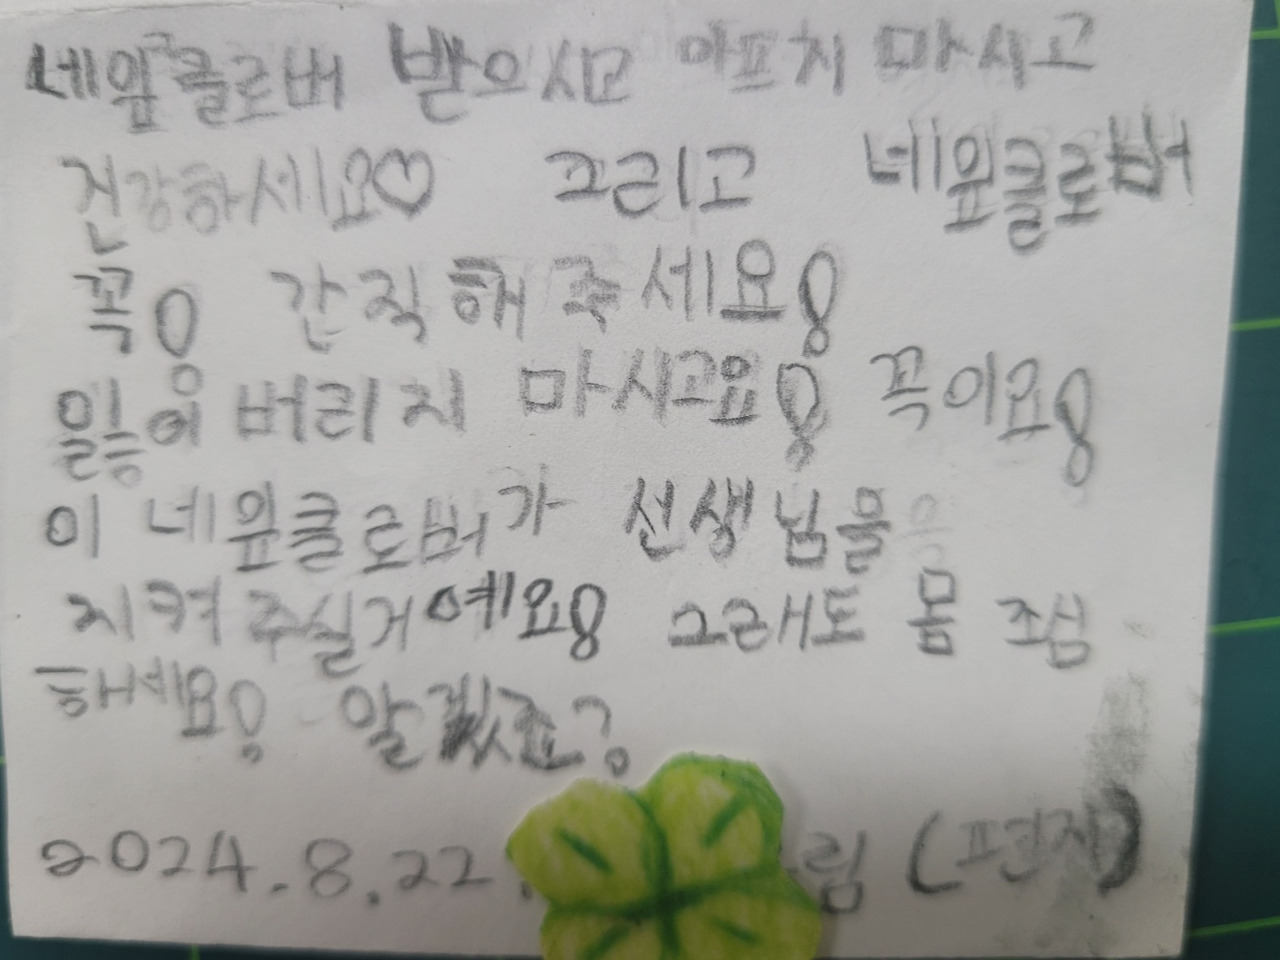 네잎클로버 받으시고 아프지 마시고
건강하세요♡ 그리고 네잎클로버
꼭! 간직해 주세요!
잃어버리지 마시고요! 꼭이요!
이 네잎클로버가 선생님을
지켜 주실거예요! 그래도 몸 조심
해세요! 알겠죠?
2024.8.22. 림 (편지)